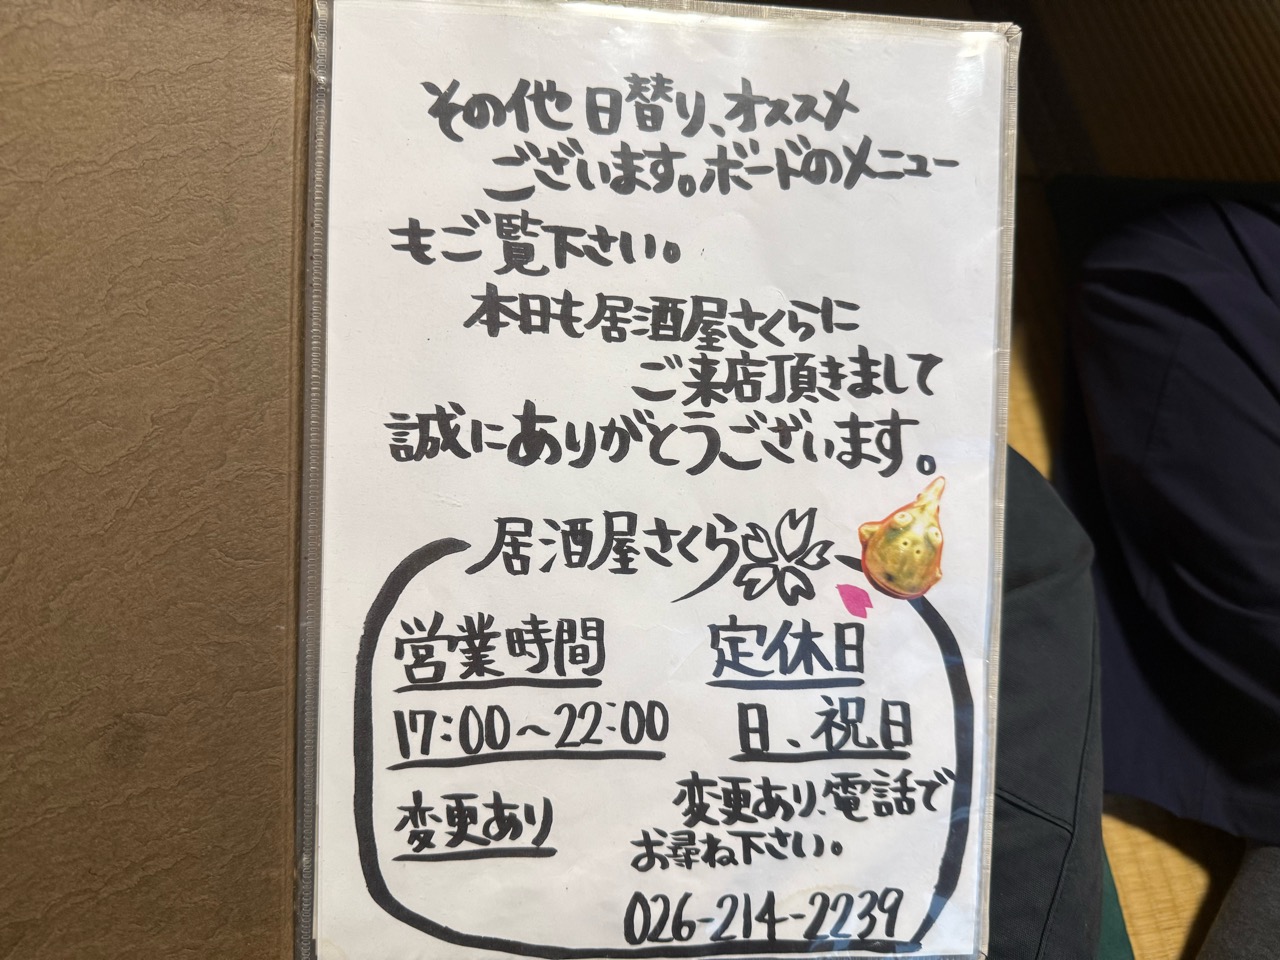 その他日替り、オススメ
ございます。ボードのメニュー
もご覧下さい。
本日も居酒屋さくらに
ご来店頂きまして
誠にありがとうございます。
居酒屋さくら
営業時間
17:00~22:00
変更あり
定休日
日、祝日
変更あり、電話で
お尋ね下さい。
026-214-2239